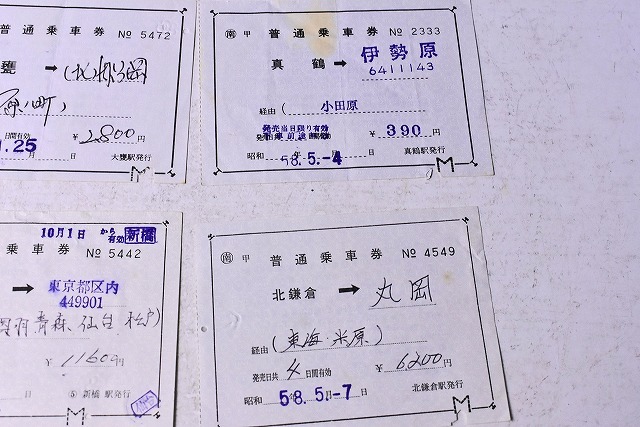 普通乗車券 No 5472
甕 → (北)
原ノ町)
日間有効 ¥ 2,800 円
.25 月 日
大甕駅発行
南 甲 普通乗車券 No 2333
真鶴 → 伊勢原
6411143
経由 ( 小田原
発売当日限り有効
¥ 390 円
昭和 58.5.-4 日
真鶴駅発行
10月1日 から有効 新橋
乗車券 No 5442
→ 東京都区内
449901
青森、仙台 松戸)
¥ 11600 円
⑤ 新橋 駅発行
南 甲 普通乗車券 No 4549
北鎌倉 → 丸岡
経由 (東海 米原)
発売日共 4 日間有効 ¥ 6200 円
昭和 58.5.-7 日
北鎌倉駅発行